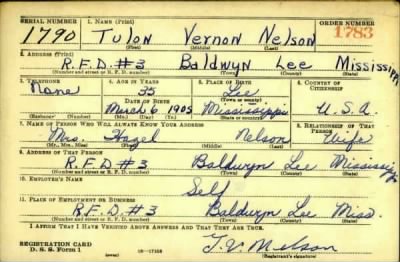 SERIAL NUMBER 1. NAME (Print) ORDER NUMBER
1790 Tulon Vernon Nelson 1783
(First) (Middle) (Last)
2. ADDRESS (Print)
R.F.D.#3 Baldwyn Lee Mississippi
(Number and street or R. F. D. number) (Town) (County) (State)
3. TELEPHONE 4. AGE IN YEARS 5. PLACE OF BIRTH 6. COUNTRY OF CITIZENSHIP
None 35 Lee
DATE OF BIRTH (Town or county)
March 6 1905 Mississippi U.S.A.
(Exchange) (Number) (Mo.) (Day) (Yr.) (State or country)
7. NAME OF PERSON WHO WILL ALWAYS KNOW YOUR ADDRESS 8. RELATIONSHIP OF THAT PERSON
Mrs. Hazel Nelson Wife
(Mr., Mrs., Miss) (First) (Middle) (Last)
9. ADDRESS OF THAT PERSON
R.F.D#3 Baldwyn Lee Mississippi
(Number and street or R. F. D. number) (Town) (County) (State)
10. EMPLOYER'S NAME
Self
11. PLACE OF EMPLOYMENT OR BUSINESS
R.F.D.#3 Baldwyn Lee Miss.
(Number and street or R. F. D. number) (Town) (County) (State)
I AFFIRM THAT I HAVE VERIFIED ABOVE ANSWERS AND THAT THEY ARE TRUE.
REGISTRATION CARD
D. S. S. Form 1 16-17105 T.V. Nelson
(Registrant's signature)